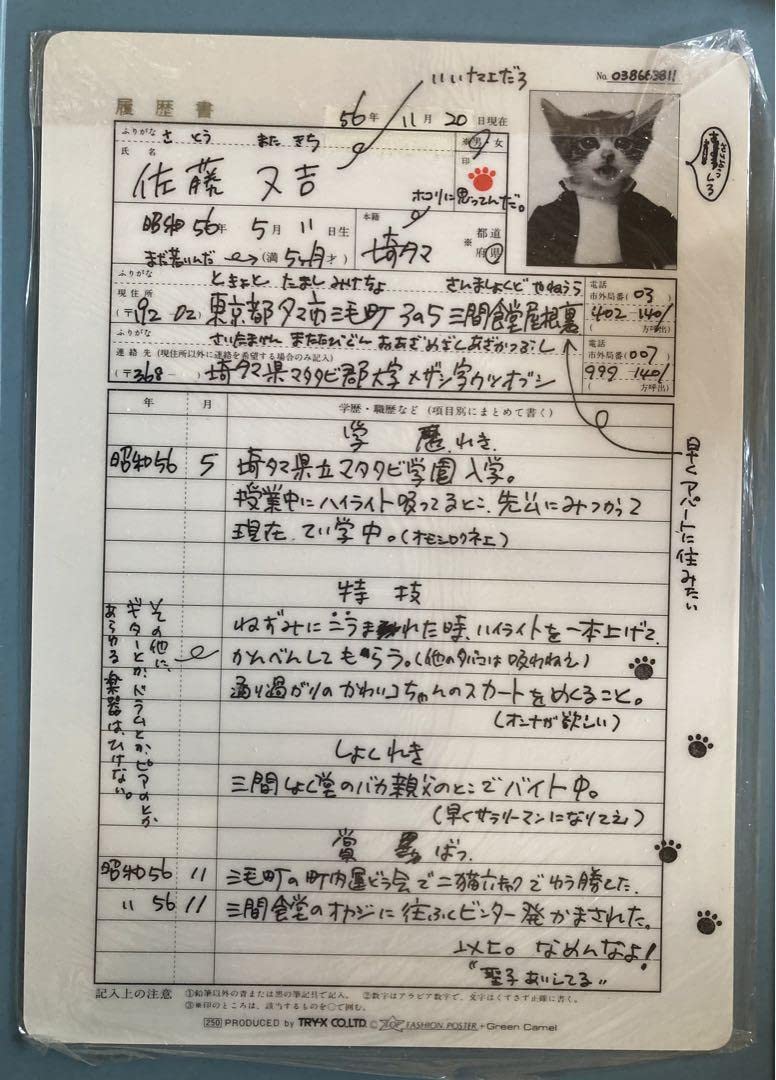 いいナマエだろ
No. 038663811
履歴書
56年 11月 20日現在
ふりがな さ とう また きち
※男・女
氏 名
佐藤 又吉
印
ホコリに思ってんだ。
昭和56年 5月 11日生
まだ若いんだ (満 5ヶ月才)
本籍
埼タマ
※都道府県
ふりがな ときょと たまし みけちょ さんましょくど やねうら
現住所
(〒192-02) 東京都タマ市三毛町3の5 三間食堂屋根裏
電話
市外局番(03)
402-1401
(方呼出)
ふりがな さいたまけん またたびぐん おおあざめざしあざかつぶし
連絡先(現住所以外に連絡を希望する場合のみ記入)
(〒368- ) 埼タマ県マタタビ郡大字メザシ字カツオブシ
電話
市外局番(007)
999-1401
(方呼出)
早くアパートに住みたい
年 月 学歴・職歴など(項目別にまとめて書く)
学 歴.れき.
昭和56 5 埼タマ県立マタタビ学園入学。
授業中にハイライト吸ってるとこ、先公にみつかって
現在、てい学中。(オモシロクネエ)
特 技
ねずみにニラまれた時、ハイライトを一本上げて、
かんべんしてもらう。(他のタバコは吸わねえ)
通り過がりのかわいコちゃんのスカートをめくること。
(オンナが欲しい)
その他に、
ギターとか、ドラムとか、ピアノとか
あらゆる楽器は、ひけない。
しょくれき
三間しょく堂のバカ親父のとこでバイト中。
(早くサラリーマンになりてえ)
賞 罰 ばつ.
昭和56 11 三毛町の町内運どう会で二猫六キャクでゆう勝した。
〃 56 11 三間食堂のオヤジに往ふくビンター発かまされた。
以上。なめんなよ!
"聖子あいしてる"
記入上の注意 ①鉛筆以外の青または黒の筆記具で記入。 ②数字はアラビア数字で、文字はくずさず正確に書く。
③※印のところは、該当するものを○で囲む。
250 PRODUCED by TRY-X CO.LTD. © TOP FASHION POSTER + Green Camel